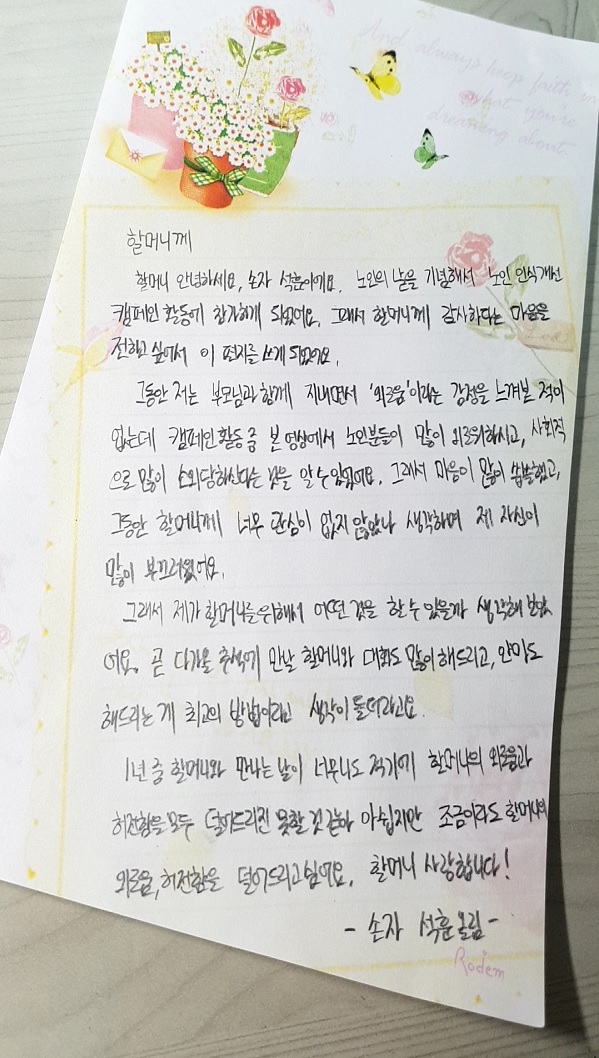 And always keep faith in
what you're
dreaming about.
할머니께
할머니 안녕하세요, 손자 석훈이에요. 노인의 날을 기념해서 노인 인식개선
캠페인 활동에 참가하게 되었어요. 그래서 할머니께 감사하다는 마음을
전하고 싶어서 이 편지를 쓰게 되었어요.
그동안 저는 부모님과 함께 지내면서 '외로움'이라는 감정을 느껴본 적이
없는데 캠페인 활동 중 본 영상에서 노인분들이 많이 외로워하시고, 사회적
으로 많이 소외당하신다는 것을 알 수 있었어요. 그래서 마음이 많이 씁쓸했고,
그동안 할머니께 너무 관심이 없지 않았나 생각하며 제 자신이
많이 부끄러웠어요.
그래서 제가 할머니를 위해서 어떤 것을 할 수 있을까 생각해 보았
어요. 곧 다가올 추석에 만날 할머니와 대화도 많이 해드리고, 안마도
해드리는 게 최고의 방법이라고 생각이 들더라고요.
1년 중 할머니와 만나는 날이 너무나도 적기에 할머니의 외로움과
허전함을 모두 덜어드리진 못할 것 같아 아쉽지만 조금이라도 할머니의
외로움, 허전함을 덜어드리고 싶어요. 할머니 사랑합니다!
- 손자 석훈 올림 -
Rodem